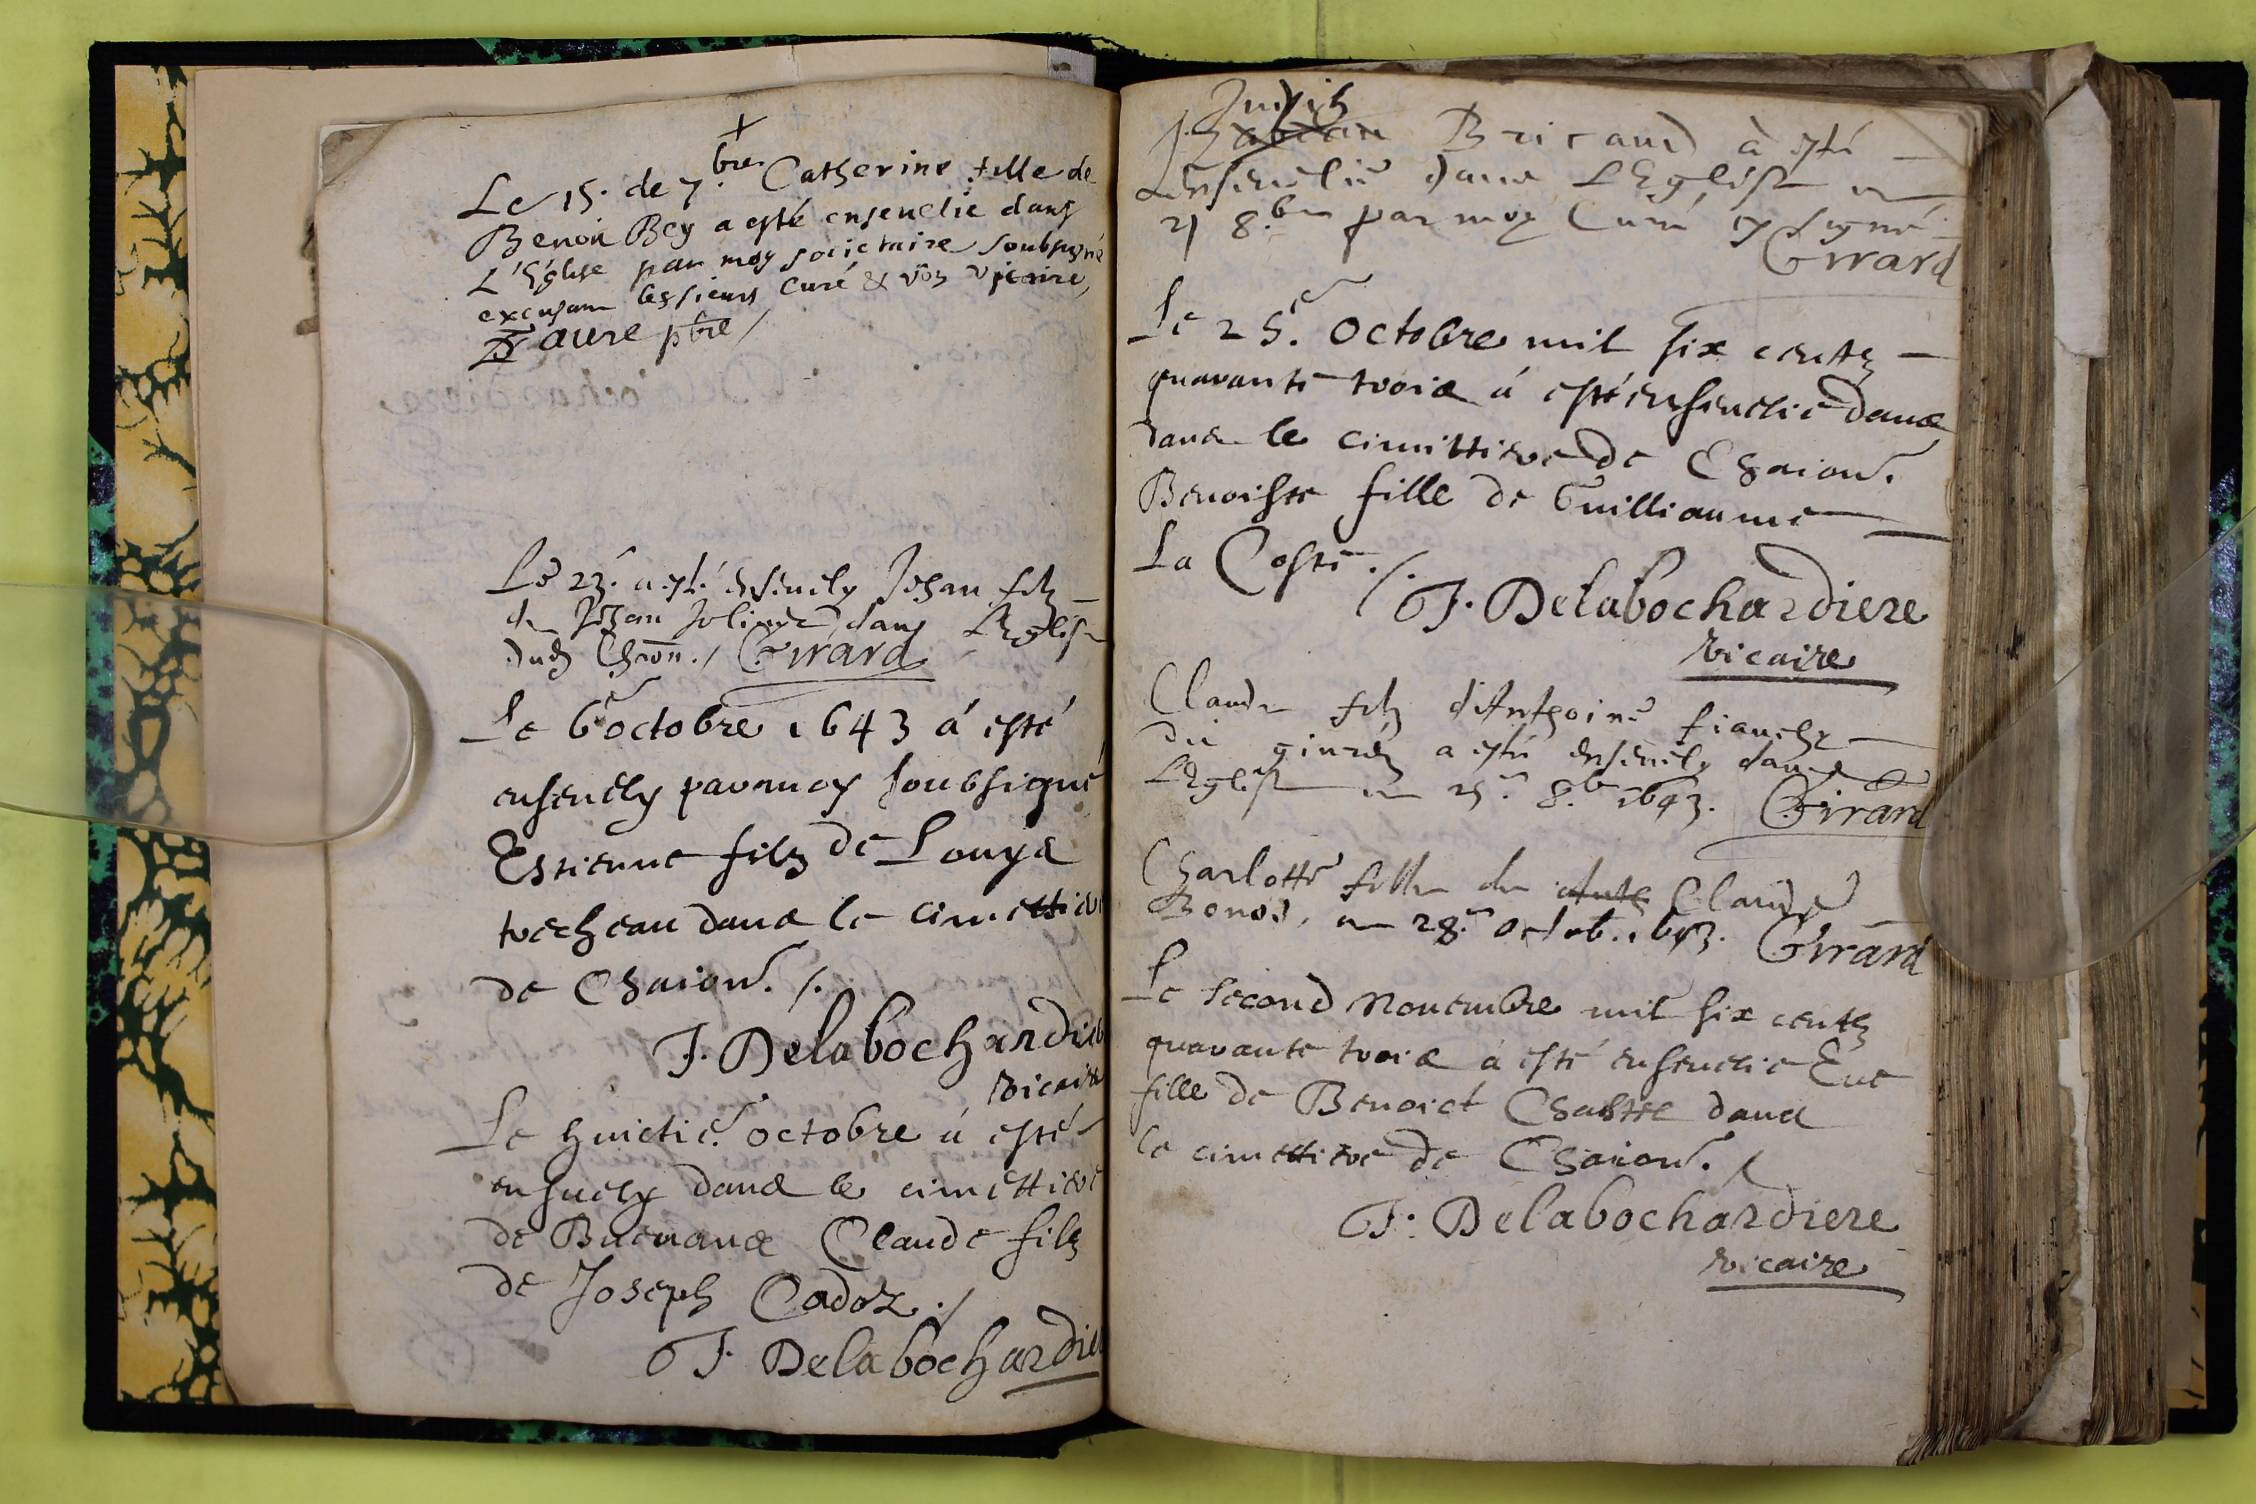 +
Le 15. de 7.bre Catherine fille de
Benoi Bey a esté ensevelie dans
L'Eglise par moy societaire soubsigné
excusant les sieurs Curé & vicaire,
Faure pbre /
Le 23. a esté ensevely Jehan filz
de Jehan Jolivet dans L'Eglise
dud Charon. / Girard
Le 6e octobre 1643 á esté
ensevely par moy soubsigné
Estienne filz de Louys
trecheau dans le cimettiere
de Chaion. /.
F. Delabochardiere
vicaire
Le huictie. octobre á esté
ensevely dans le cimettiere
de Buenans Claude filz
de Joseph Cadoz ./
F. Delabochardiere
Judith
Bricaud à esté
ensevelie dans L'Eglise ce
21 8.bre par moy Curé signé
Girard
Le 25.e Octobre mil six centz
quarante trois á esté ensevelie dans
dans le cimittiere de Chaion.
Benoiste fille de Guilliaume
La Coste ./.
F. Delabochardiere
vicaire
Claude filz d'Anthoine
a esté ensevely dans
L'Eglise ce 25.e 8.b 1643. Girard
Charlotte fille de Claude
Bonod, ce 28.e octob. 1643. Girard
Le second Novembre mil six centz
quarante trois á esté ensevelie Eve
fille de Benoict Chastre dans
le cimettiere de Chaion. /
F. Delabochardiere
vicaire